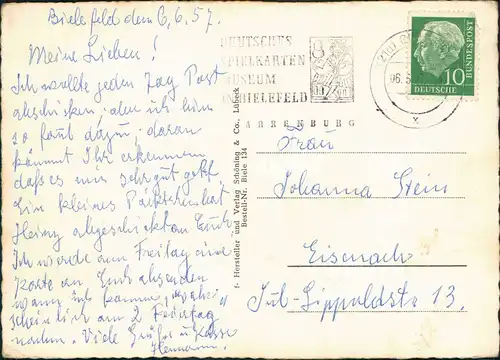 Bielefeld dem 6.6.57.
Meine Lieben!
Ich wollte jeden Tag Post
abschicken, aber ich bin
so faul dazu; daran
könnt Ihr erkennen
daß es mir sehr gut geht.
Ein kleines Päckchen hat
Heinz abgeschickt an Euch
Ich werde am Freitag eine
Karte an Euch absenden
wann ich komme, wahr-
scheinlich am 2 Feiertag
nachm. Viele Grüße u Küsse
Hermann.
DEUTSCHES
SPIELKARTEN
MUSEUM
BIELEFELD
SPARRENBURG
DEUTSCHE BUNDESPOST
10
DEUTSCHE
Frau
Johanna Stein
Eisenach
Jul-Lippoldstr 13.
Hersteller und Verlag Schöning & Co., Lübeck
Bestell-Nr. Biele 134